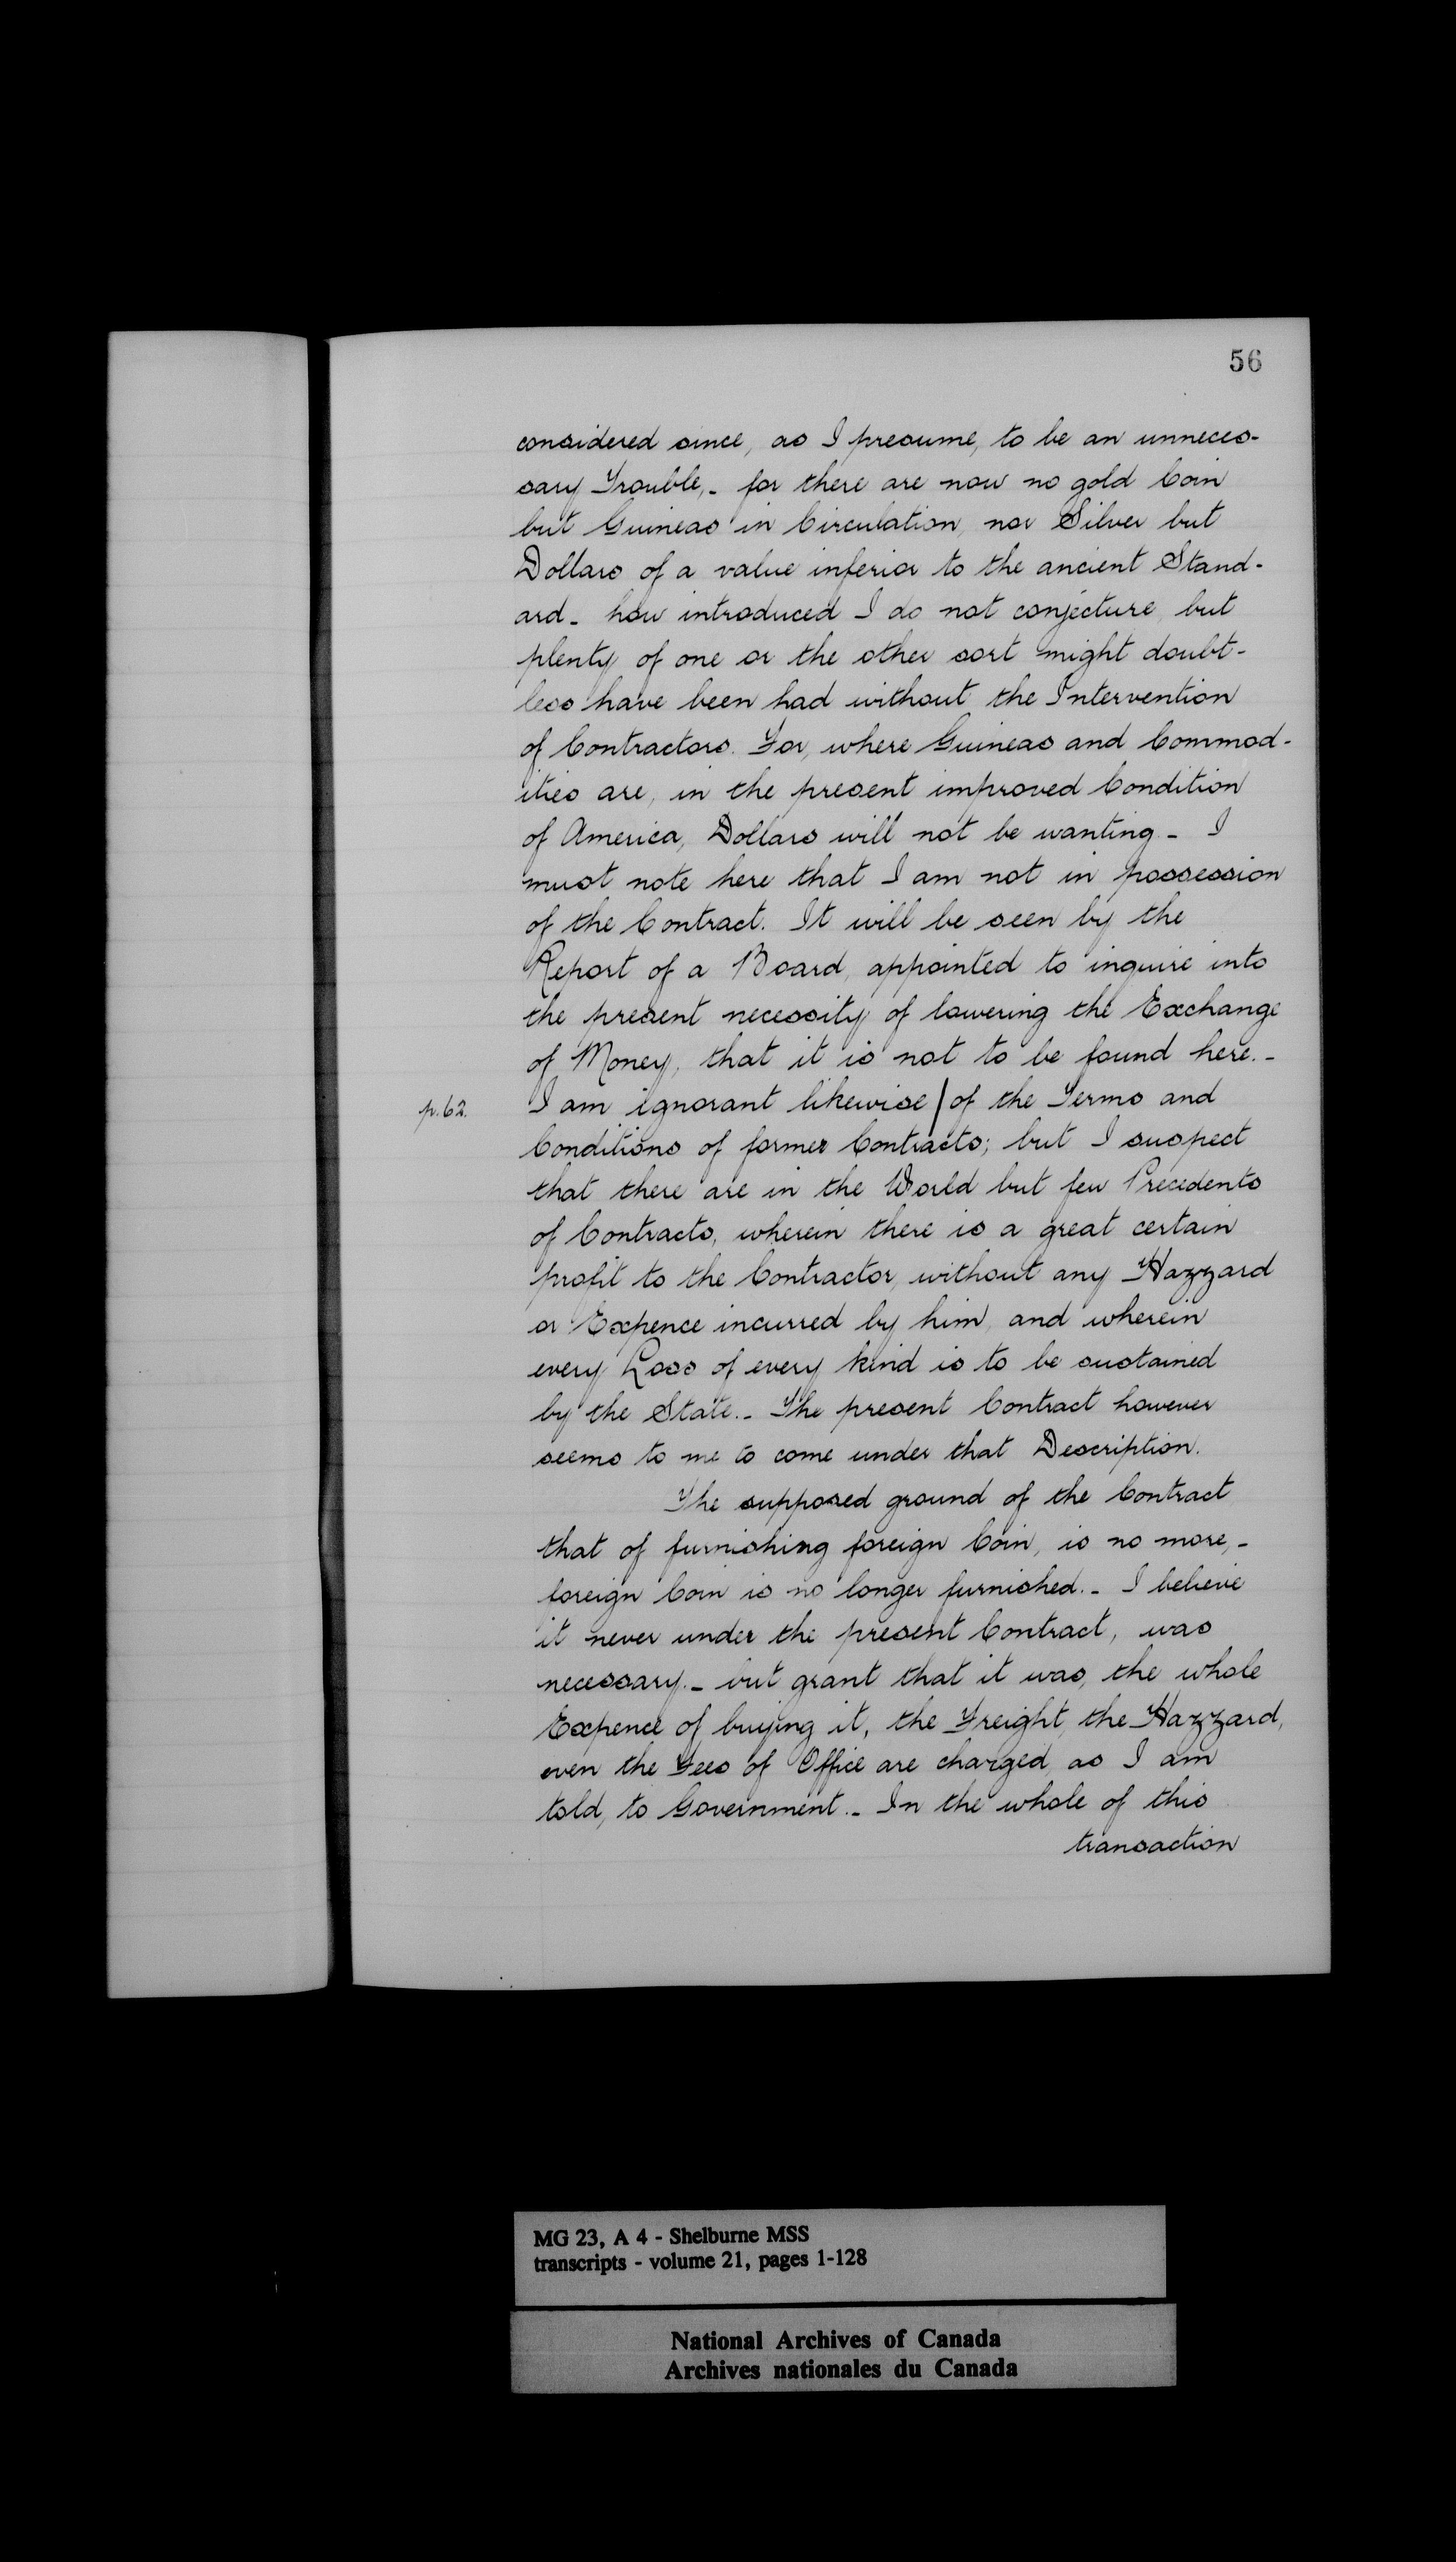 56
considered since, as I presume, to be an unneces-
sary Trouble,- for there are now no gold Coin
but Guineas in Circulation, nor Silver but
Dollars of a value inferior to the ancient Stand-
ard- how introduced I do not conjecture, but
plenty of one or the other sort might doubt-
less have been had without the Intervention
of Contractors. For, where Guineas and Commod-
ities are, in the present improved Condition
of America, Dollars will not be wanting.- I
must note here that I am not in possession
of the Contract. It will be seen by the
Report of a Board, appointed to inquire into
the present necessity of lowering the Exchange
of Money, that it is not to be found here.-
p. 62. I am ignorant likewise / of the Terms and
Conditions of former Contracts; but I suspect
that there are in the World but few Precedents
of Contracts, wherein there is a great certain
profit to the Contractor, without any Hazzard
or Expence incurred by him, and wherein
every Loss of every kind is to be sustained
by the State.- The present Contract however
seems to me to come under that Description.
The supposed ground of the Contract
that of furnishing foreign Coin, is no more,-
foreign Coin is no longer furnished.- I believe
it never under the present Contract, was
necessary.- but grant that it was, the whole
Expence of buying it, the Freight, the Hazzard,
even the Fees of Office are charged, as I am
told, to Government.- In the whole of this
transaction
MG 23, A 4 - Shelburne MSS
transcripts - volume 21, pages 1-128
National Archives of Canada
Archives nationales du Canada